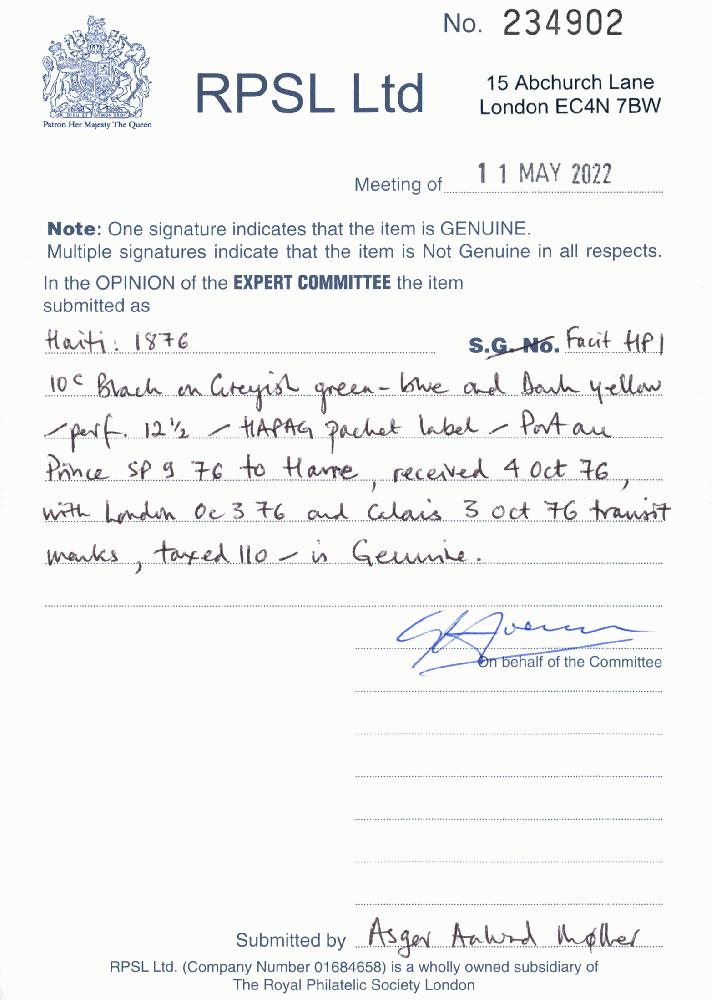 No. 234902
Patron Her Majesty The Queen
RPSL Ltd
15 Abchurch Lane
London EC4N 7BW
Meeting of 11 MAY 2022
Note: One signature indicates that the item is GENUINE.
Multiple signatures indicate that the item is Not Genuine in all respects.
In the OPINION of the EXPERT COMMITTEE the item
submitted as
Haiti: 1876 S.G. No. Facit HP1
10c Black on Greyish green-blue and Dark yellow
- perf. 12½ - HAPAG packet label - Port au
Prince SP 9 76 to Havre, received 4 Oct 76,
with London Oc 3 76 and Calais 3 Oct 76 transit
marks, taxed 110 - is Genuine.
On behalf of the Committee
Submitted by Asger Møller
RPSL Ltd. (Company Number 01684658) is a wholly owned subsidiary of
The Royal Philatelic Society London